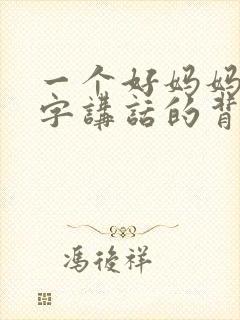 一个好妈妈
字讲話的背
馮後祥